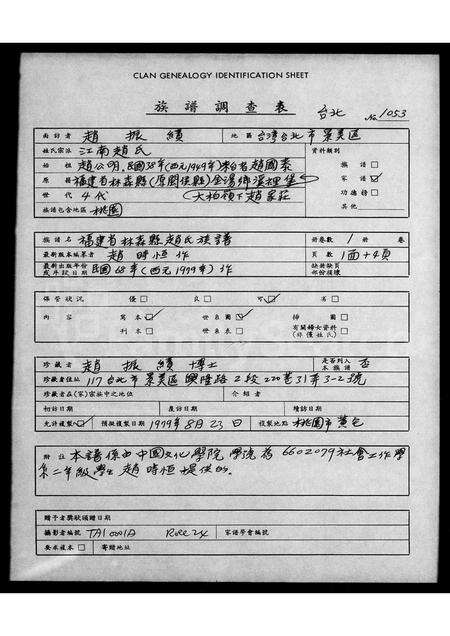 CLAN GENEALOGY IDENTIFICATION SHEET
族譜調查表 台北 No. 1053
面訪者 趙振績 地區 台湾台北市景美區
姓氏宗派 江南趙氏 資料類別
始祖 趙公明,民國38年(西元1949年)来台者趙國泰 族譜
原籍 福建省林森縣(原閩侯縣)金湯鄉溪裡堡 家譜 ✓
世代 4代 (大柏嶺下趙家莊) 功德簿
族譜包含地區 桃園 其他
族譜名 福建省林森縣趙氏族譜 冊卷數 1 冊 卷
最新版本編纂者 趙時恒作 頁數 1面+4頁
最新出版年份或序記日期 民國68年(西元1979年)作 缺冊缺頁部份損壞
保管狀況 優 良 可 ✓ 書
內容 寫本 ✓ 世系圖 ✓ 掃圖
刊本 世系表 有關婦女資料(非僅姓氏)
珍藏者 趙振績博士 是否列入本族譜 否
珍藏者住址 117台北市景美區興隆路2段220巷31弄3-2號
珍藏者在(家)宗族中之地位 介紹者
初訪日期 復訪日期 續訪日期
允許複製 ✓ 預擬複製日期 1979年8月23日 複製地點 桃園市黄宅
附註 本譜係由中國文化學院學號為6602079社會工作學
系二年級學生趙時恒提供的.
贈予者獎狀頒贈日期
攝影者編號 TAI 0001A Roll 24 家譜學會編號
要求複本 寄贈地址